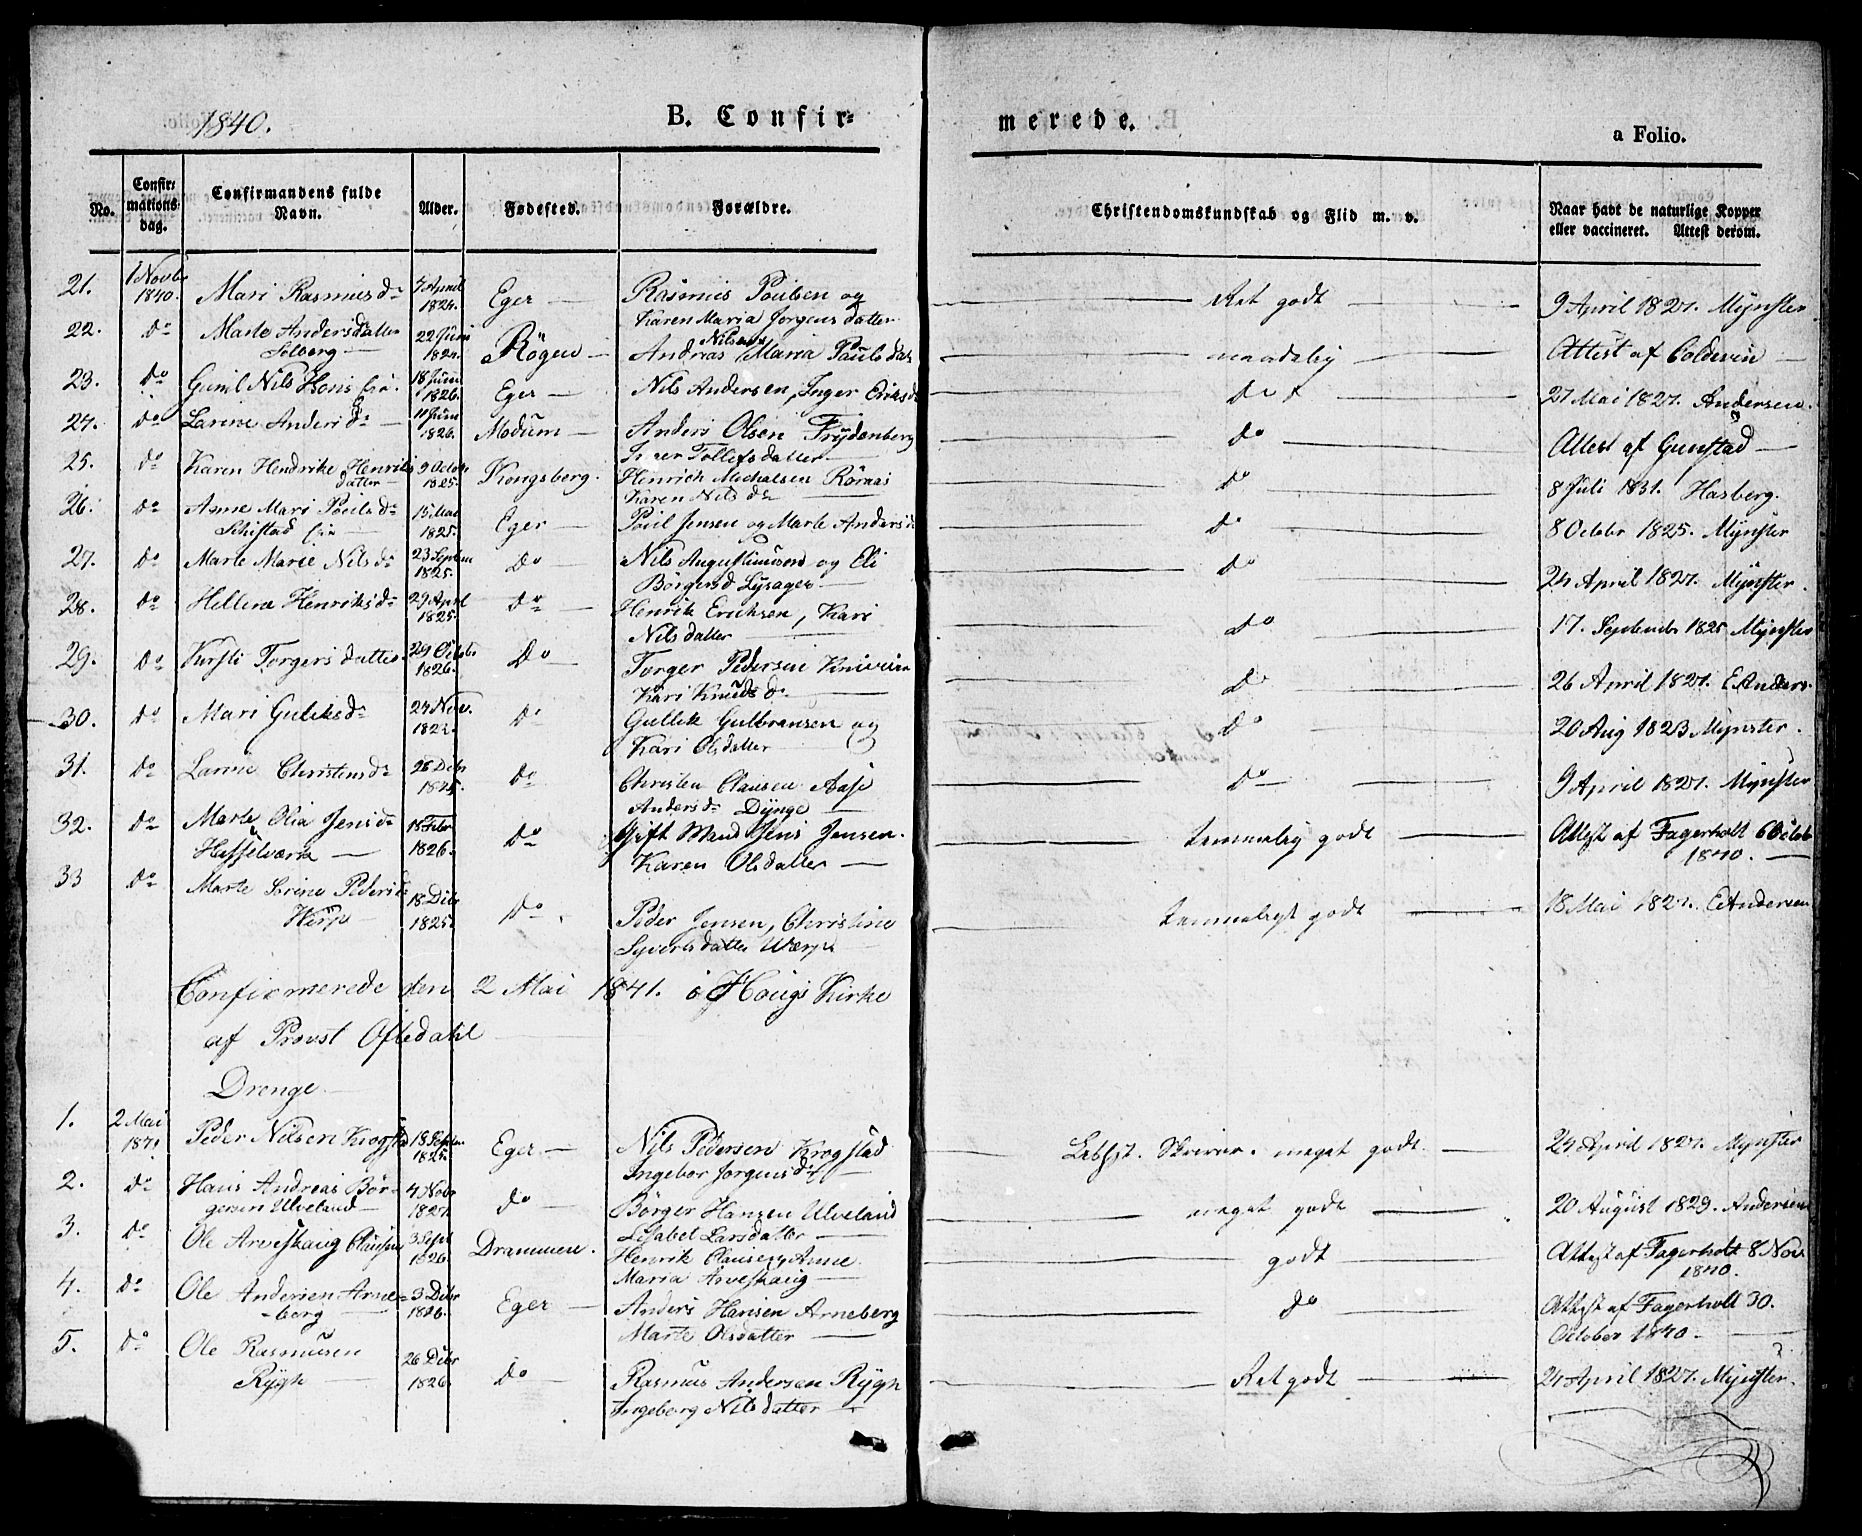 1840.
B. Confir-
merede.
a Folio.
No.
Confir-
mations-
dag.
Confirmandens fulde
Navn.
Alder.
Fødested.
Forældre.
Christendomskundskab og Flid m. v.
Naar havt de naturlige Kopper
eller vaccineret. Attest derom.
21. 1 Novbr 1840. Mari Rasmusdr 7 April 1824. Eger Rasmus Poulsen og
Karen Maria Jørgensdatter Ret godt 9 April 1827. Mynster
22. do Marte Andersdatter
Solberg 22 Juni Røgen Andreas Nilsen Maria Paulsdat maadelig Attest af
23. do Nils 18 Juni 1826. Eger Nils Andersen, Inger Eriksd do 27 Mai 1827. Andersen.
24. do Larine Andersdr 11 Juni 1826. Modum Anders Olsen Frydenberg
Tollefsdatter do Attest af Gunstad
25. do Karen Hendrike Henriks
datter 9 Octobr 1825. Kongsberg. Henrich Michalsen
Karen Nilsdr do 8 Juli 1831. Hasberg.
26. do Anne Mari Poulsdr
Schistad 15 Mai 1825. Eger Poul Jensen og Marte Andersd do 8 Octobr 1825. Mynster
27. do Marte Marie Nilsdr 23 Septem 1825. do Nils og Eli
Børgersd Lysager do 24 April 1827. Mynster.
28. do Hellene Henriksdr 29 April 1825 do Henrik Erichsen, Kari
Nilsdatter do 17. September 1825 Mynster
29. do Kirsti Torgersdatter 24 Octobr 1826. do Torger Pedersen
Kari Knudsdr do 26 April 1827. E. Anders.
30. do Mari Guliksdr 24 Nov. do Gullik Gulbransen og
Kari Olsdatter do 20 Aug 1823 Mynster.
31. do Larine Christensdr 28 Debr 1825. do Christen Clausen Aase
Andersdr Dynge do 9 April 1827. Mynster
32. do Marte Olia Jensdr
Hasselværk 18 Febr 1826. do Gift Mand Jens Jensen.
Karen Olsdatter temmelig godt Attest af Fagerholt 6 Octob
1840.
33 do Marte Sørine Pedersdr
18 Debr 1825. do. Peder Jensen, Christine
Syvertsdatter temmeligt godt 18 Mai 1827. E Andersen
Confirmerede den 2 Mai 1841. i Hougs Kirke
af Provst Oftedahl
Drenge
1. 2 Mai 1841 Peder Nilsen Krogstad 18 Septem 1825. Eger Nils Pedersen Krogstad
Ingebor Jørgensdr Skriver. meget godt. 24 April 1827. Mynster
2. do Hans Andreas Bør-
gersen Ulveland 4 Nobr 1827. do Børger Hansen Ulveland
Lisabet Larsdatter meget godt 20 August 1829. Andersen
3. do Ole Arveskaug Clausen 3 Sept 1826. Drammen. Henrik Clausen, Anne
Maria Arveskaug godt Attest af Fagerholt 8 Nov
1840.
4. do Ole Andersen Arne-
berg 3 Debr 1826. Eger Anders Hansen Arneberg
Marte Olsdatter do Attest af Fagerholt 30.
October 1840.
5. do Ole Rasmusen
Rygh 26 Debr 1826 do Rasmus Andersen Rygh
Ingeborg Nilsdatter Ret godt 24 April 1827. Mynster.